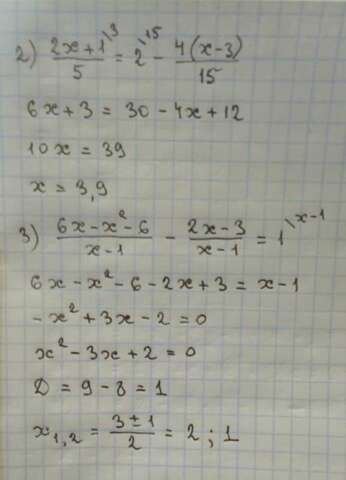 2) (2x+1)/5 \3 = 2 \15 − 4(x−3)/15
6x+3 = 30 − 4x + 12
10x = 39
x = 3,9
3) (6x−x²−6)/(x−1) − (2x−3)/(x−1) = 1 \x−1
6x − x² − 6 − 2x + 3 = x − 1
−x² + 3x − 2 = 0
x² − 3x + 2 = 0
D = 9 − 8 = 1
x₁,₂ = (3±1)/2 = 2 ; 1